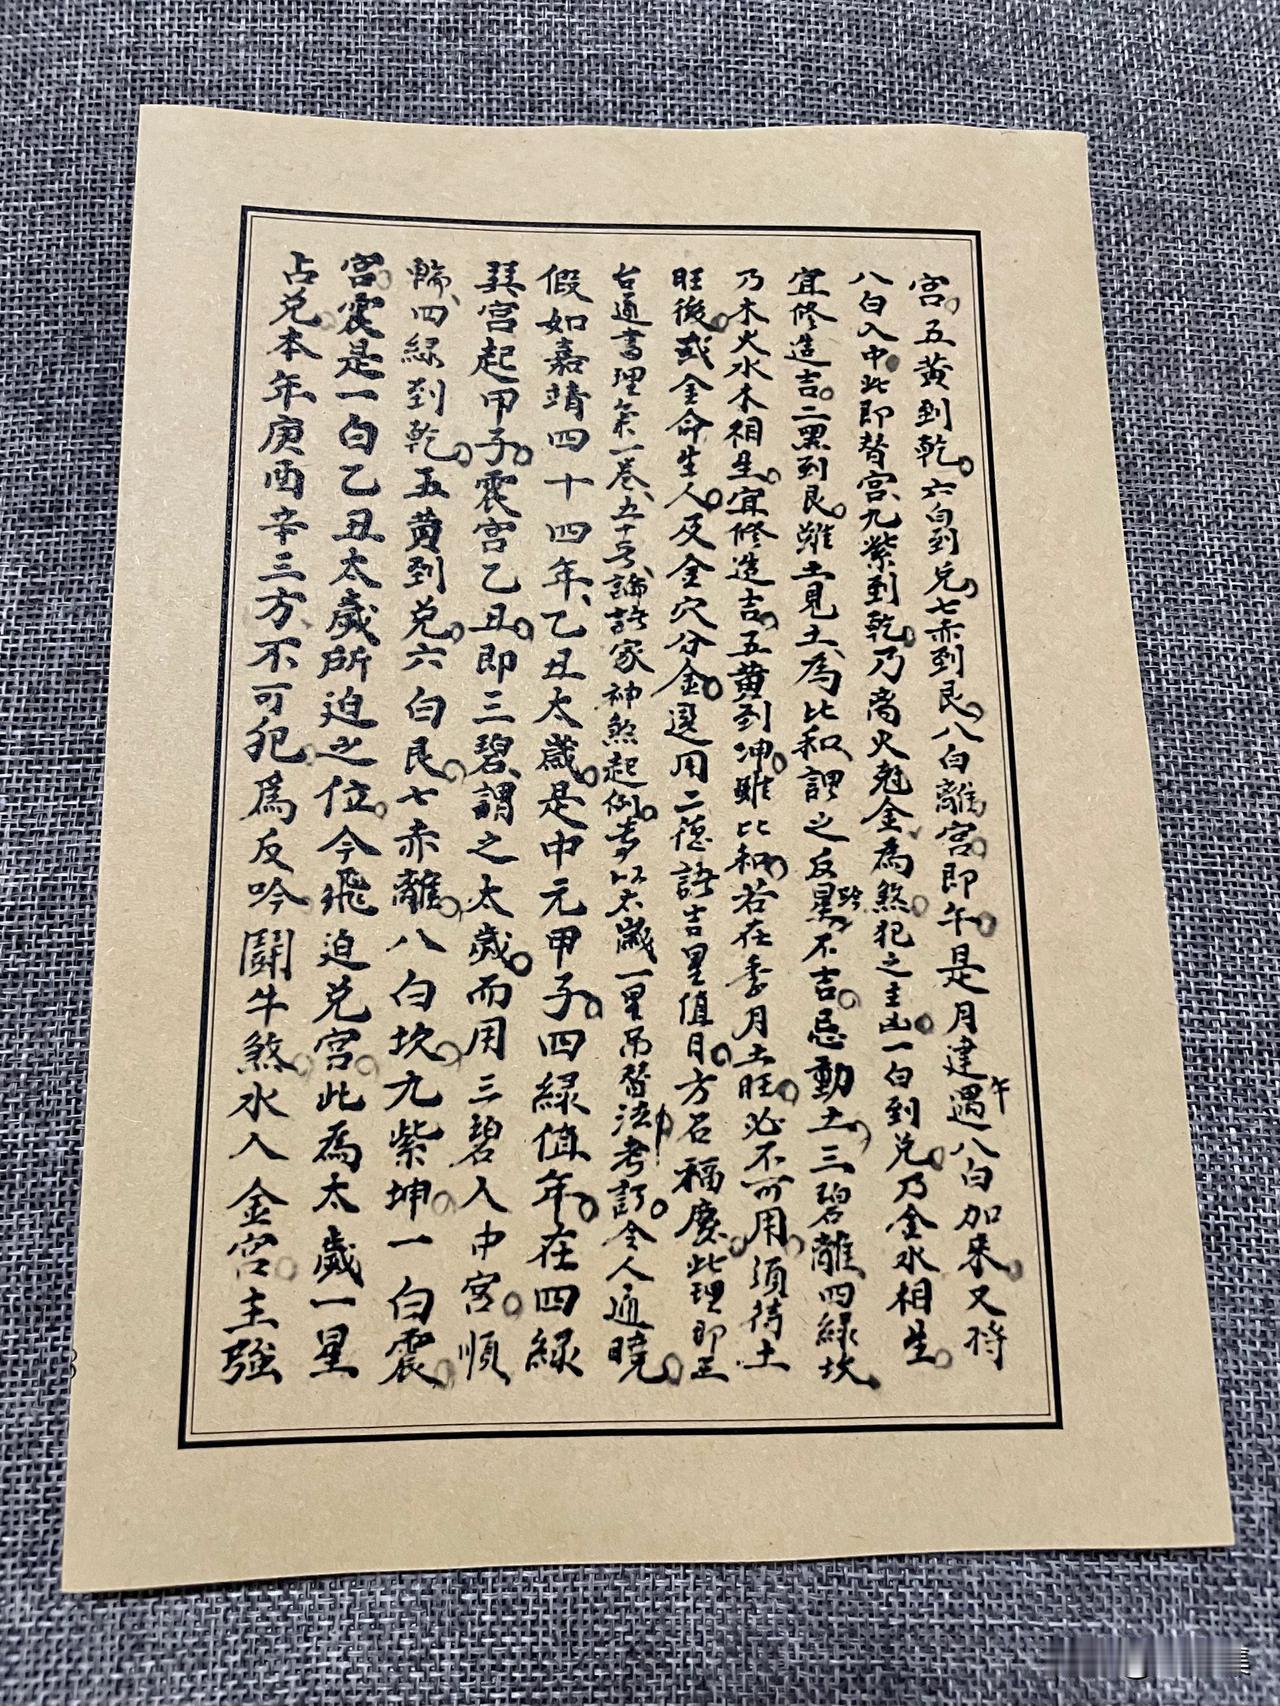 宮。五黃到乾。六白到兌。七赤到艮。八白離宮。即午是月建遇午八白加來。又将
八白入中。此即替宮、九紫到乾。乃离火尅金為煞。犯之主凶。一白到兌。乃金水相生。
宜修造吉。二黑到艮。雖土見土、為比和、謂之反星不吉。忌動土。三碧離、四綠坎、
乃木火水木相生。宜修造吉。五黃到坤。雖比和。若在季月土旺。必不可用。須待土
旺後。或金命生人。及金穴分金。選用二德諸吉星值日。方召福慶。此理即三
台通書理氣一卷、五十号、論諸家神煞起例。專以太歲一星吊替法考訂。令人通曉。
假如嘉靖四十四年、乙丑太歲。是中元甲子。四綠值年。在四綠
巽宮起甲子。震宮乙丑。即三碧、謂之太歲。而用三碧入中宮。順
輪、四綠到乾。五黃到兌。六白艮。七赤離。八白坎。九紫坤。一白震
宮。震是一白乙丑太歲所迫之位。今飛迫兌宮。此為太歲一星
占兌。本年庚酉辛三方、不可犯。為反吟鬪牛煞。水入金宮。主強